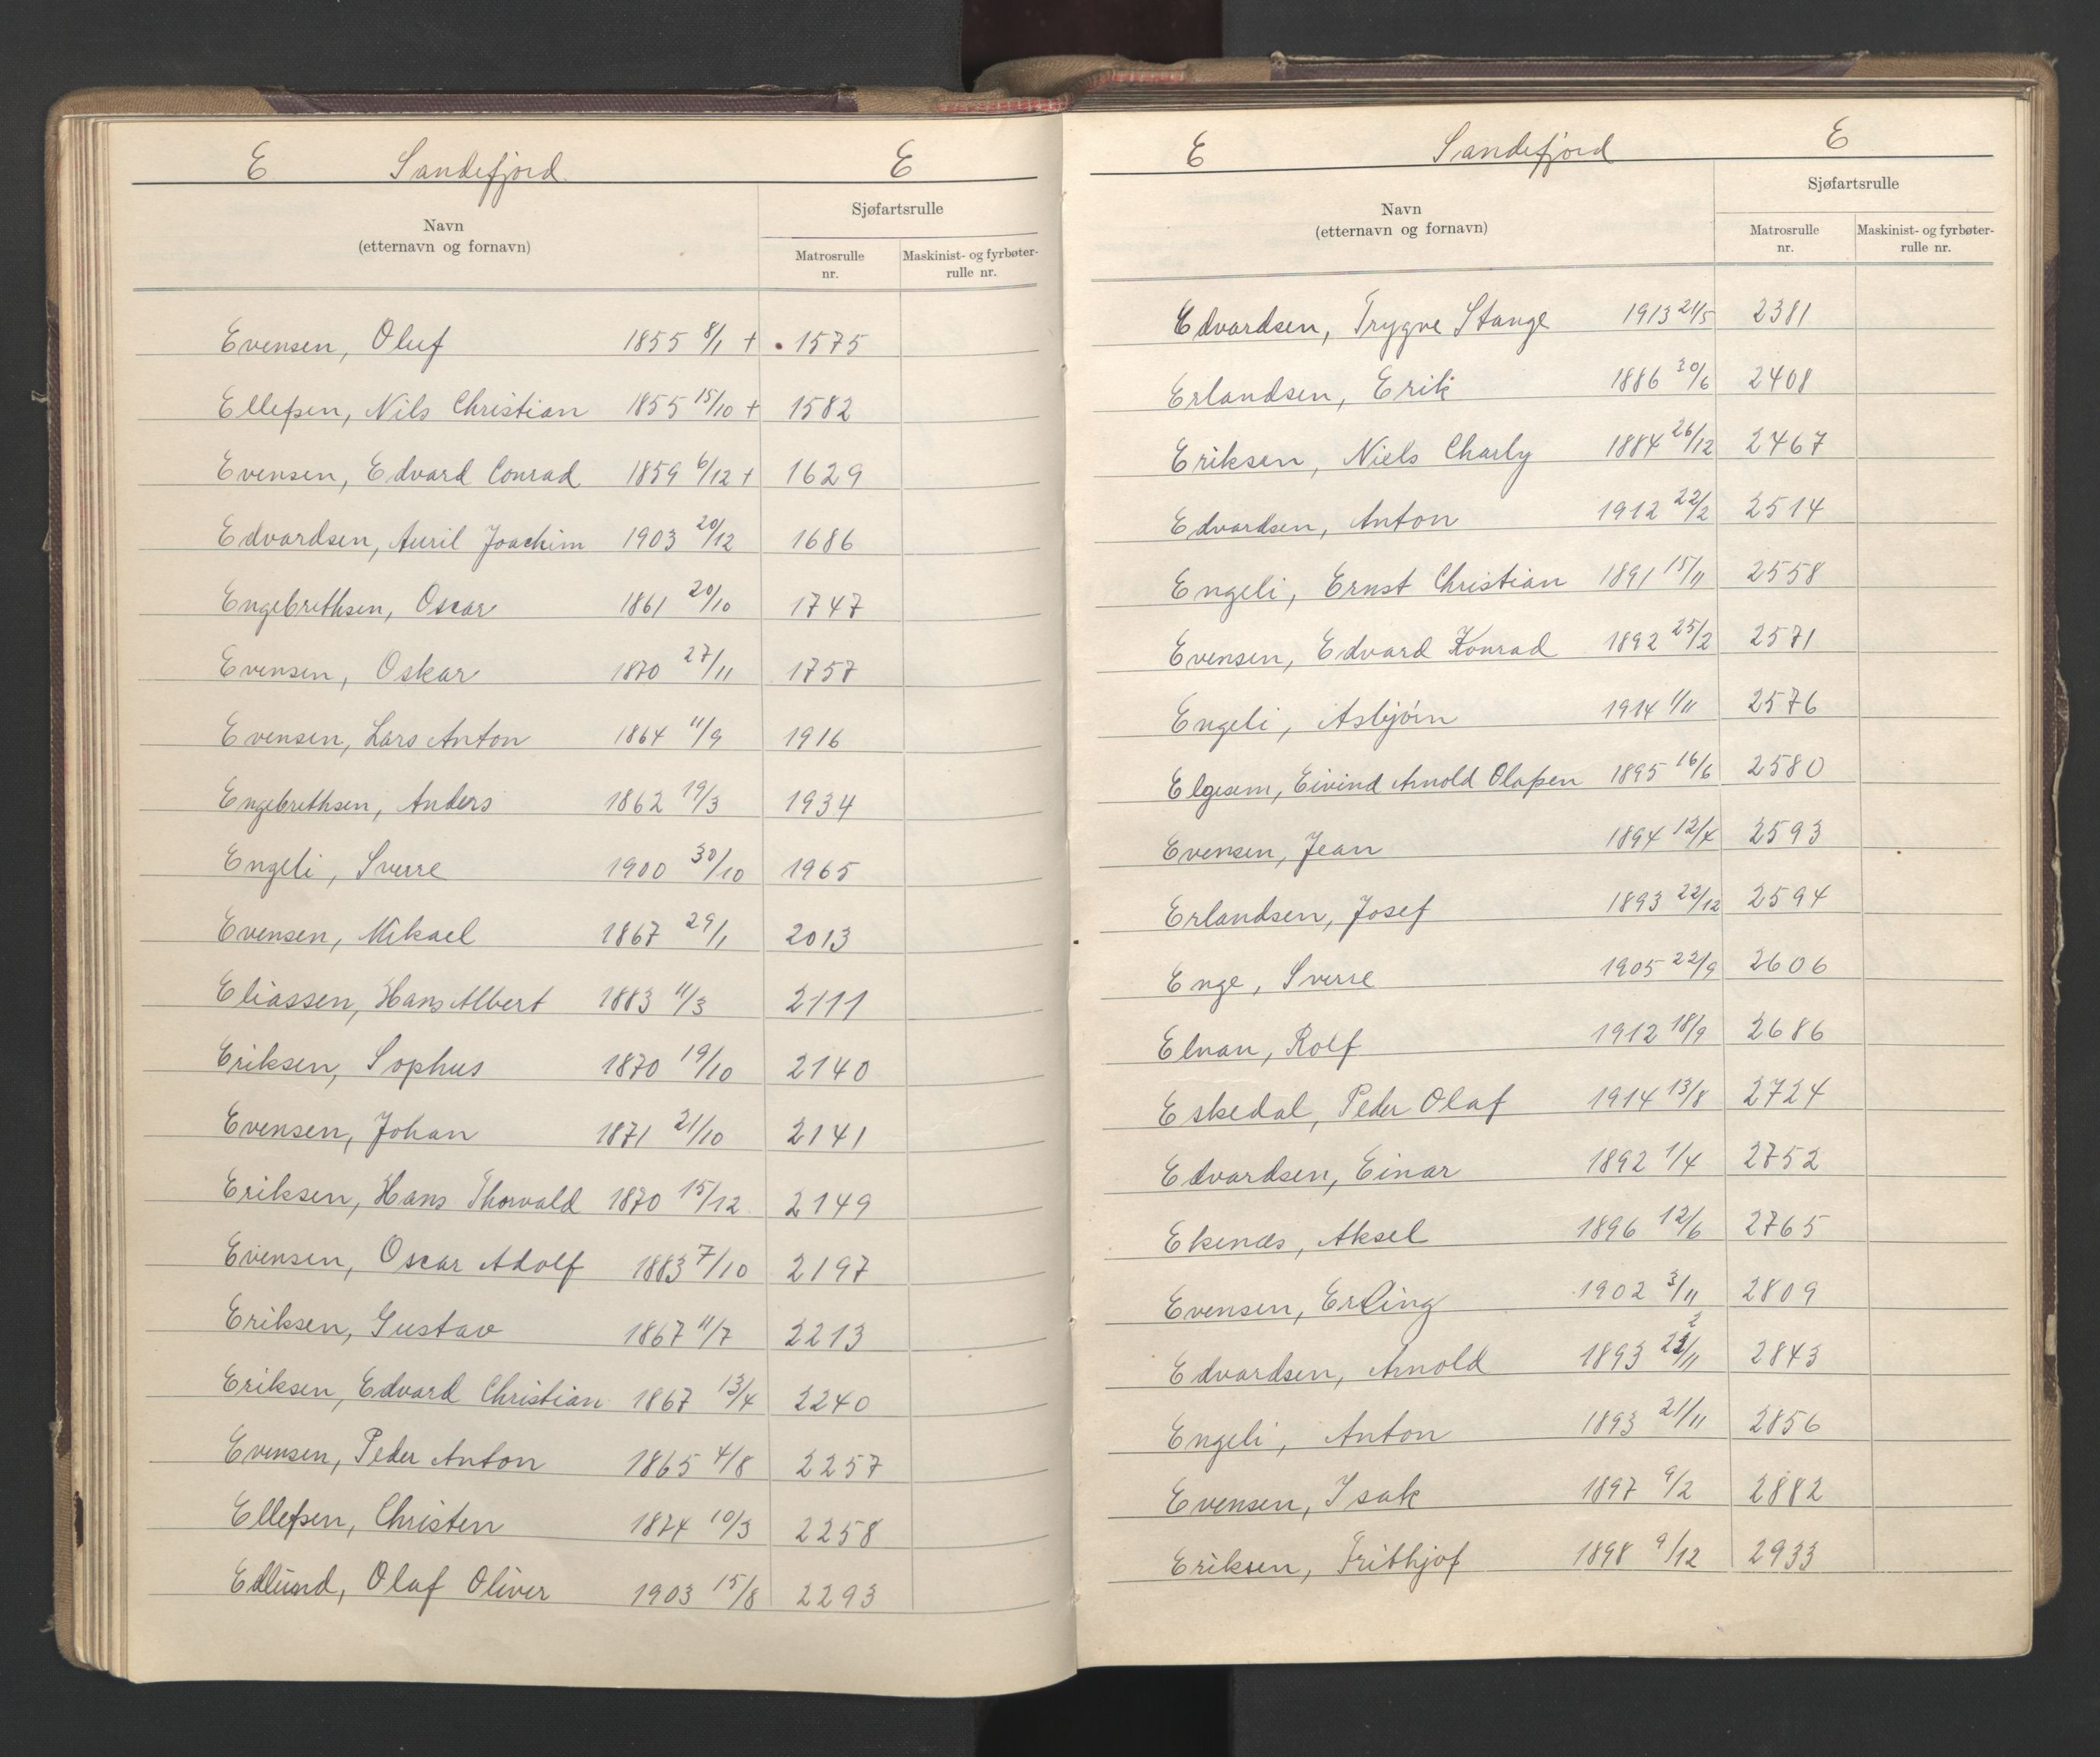 E Sandefjord. E
Sjøfartsrulle
Navn
(etternavn og fornavn)
Matrosrulle nr.
Maskinist- og fyrbøter-rulle nr.
Evensen, Oluf 1855 8/1 + . 1575
Ellefsen, Nils Christian 1855 15/10 + 1582
Evensen, Edvard Conrad 1859 6/12 + 1629
Edvardsen, Joachim 1903 20/12 1686
Engebrethsen, Oscar 1861 20/10 1747
Evensen, Oskar 1870 27/11 1757
Evensen, Lars Anton 1864 11/9 1916
Engebrethsen, Anders 1862 19/3 1934
Engeli, Sverre 1900 30/10 1965
Evensen, Mikael 1867 29/1 2013
Eliassen, Hans Albert 1883 11/3 2111
Eriksen, Sophus 1870 19/10 2140
Evensen, Johan 1871 21/10 2141
Eriksen, Hans Thorvald 1870 15/12 2149
Evensen, Oscar Adolf 1883 7/10 2197
Eriksen, Gustav 1867 11/7 2213
Eriksen, Edvard Christian 1867 13/4 2240
Evensen, Peder Anton 1865 4/8 2257
Ellefsen, Christen 1874 10/3 2258
Edlund, Olaf Oliver 1903 15/8 2293
E Sandefjord E
Sjøfartsrulle
Navn
(etternavn og fornavn)
Matrosrulle nr.
Maskinist- og fyrbøter-rulle nr.
Edvardsen, Trygve Stange 1913 21/5 2381
Erlandsen, Erik 1886 30/6 2408
Eriksen, Niels Charly 1884 26/12 2467
Edvardsen, Anton 1912 22/2 2514
Engeli, Ernst Christian 1891 15/11 2558
Evensen, Edvard Konrad 1892 25/2 2571
Engeli, Asbjörn 1914 1/11 2576
Elgesem, Eivind Arnold Olafsen 1895 16/6 2580
Evensen, Jean 1894 12/4 2593
Erlandsen, Josef 1893 22/12 2594
Enge, Sverre 1905 22/9 2606
Elvan, Rolf 1912 18/9 2686
Eskedal, Peder Olaf 1914 13/8 2724
Edvardsen, Einar 1892 1/4 2752
Ekenæs, Aksel 1896 12/6 2765
Evensen, Erling 1902 3/11 2809
Edvardsen, Arnold 1893 22/11 2843
Engeli, Anton 1893 21/11 2856
Evensen, Isak 1897 9/2 2882
Eriksen, Frithjof 1898 9/12 2933